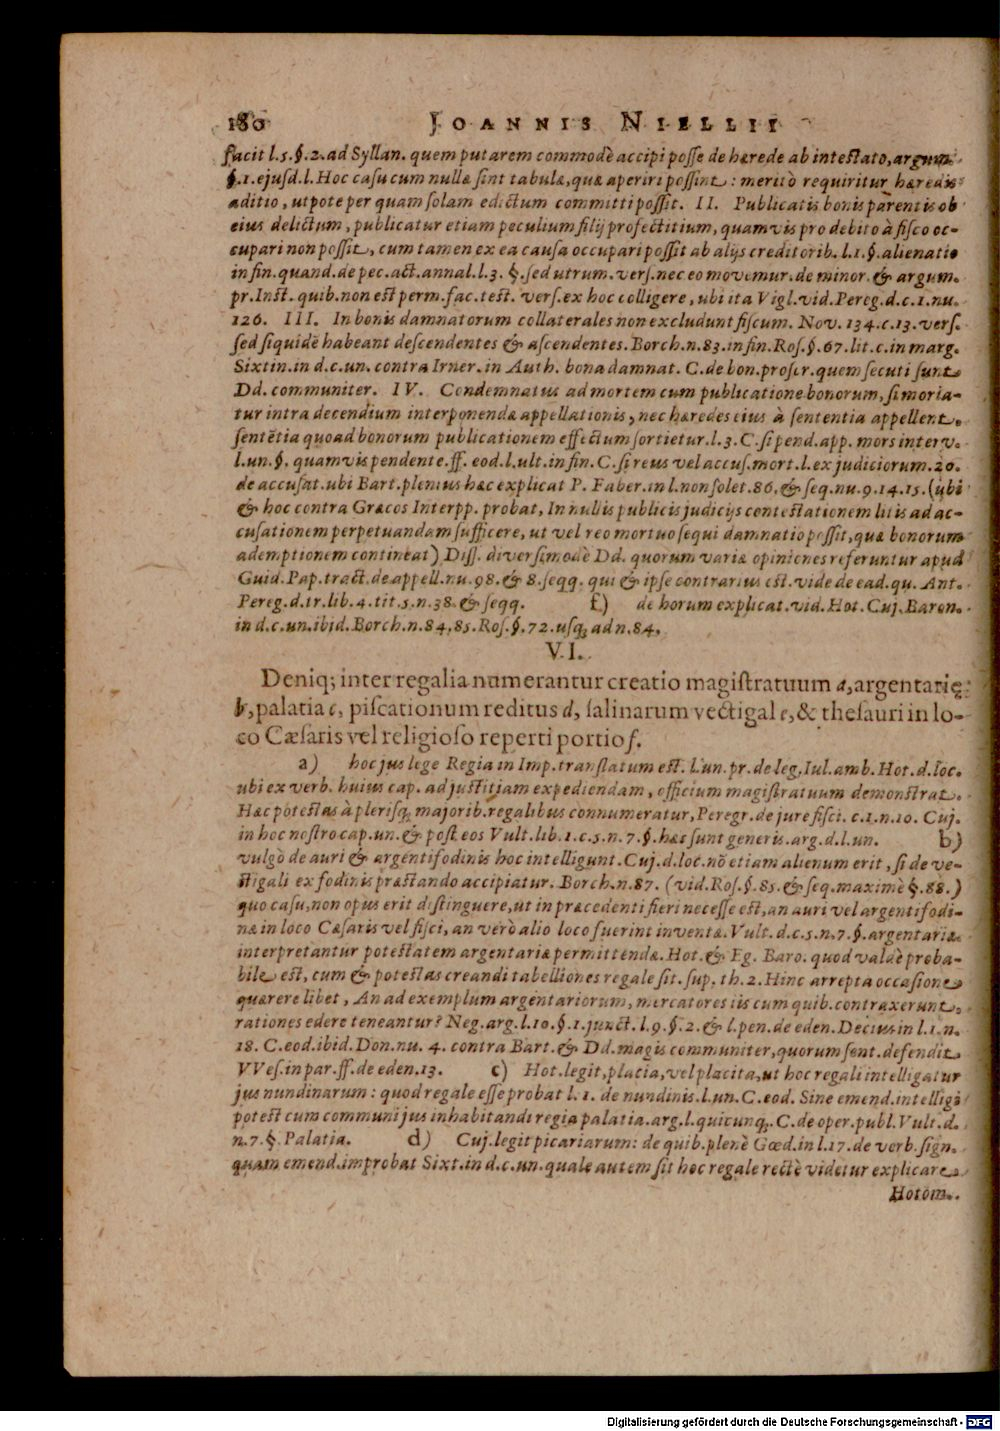 180 JOANNIS NIELLII
facit l.5.§.2.ad Syllan. quem putarem commodè accipi posse de hærede ab intestato, argum.
§.1.ejusd.l. Hoc casu cum nullæ sint tabulæ, quæ aperiri possint: meritò requiritur hæredis
aditio, utpote per quam solam edictum committi possit. II. Publicatis bonis parentis ob
eius delictum, publicatur etiam peculium filij profectitium, quamvis pro debito à fisco oc-
cupari non possit, cum tamen ex ea causa occupari possit ab alijs creditorib. l.1.§.alienatio
in fin. quand. de pec. act. annal. l.3. §.sed utrum. vers. nec eo movemur. de minor. & argum.
pr. Inst. quib. non est perm. fac. test. vers. ex hoc colligere, ubi ita Vigl. vid. Pereg. d.c.1.nu.
126. III. In bonis damnatorum collaterales non excludunt fiscum. Nov. 134.c.13. vers.
sed siquidē habeant descendentes & ascendentes. Borch.n.83. in fin. Ros.§.67.lit.c.in marg.
Sixtin. in d.c.un. contra Irner. in Auth. bona damnat. C. de bon. proscr. quem secuti sunt
Dd. communiter. IV. Condemnatus ad mortem cum publicatione bonorum, si moria-
tur intra decendium interponendæ appellationis, nec hæredes eius à sententia appellent,
sentētia quoad bonorum publicationem effectum sortietur. l.3. C. si pend. app. mors interv.
l.un.§. quamvis pendente. ff. eod. l.ult. in fin. C. si reus vel accus. mort. l. ex judiciorum. 20.
de accusat. ubi Bart. plenius hæc explicat P. Faber. in l. non solet. 86. & seq. nu. 9.14.15. (ubi
& hoc contra Græcos Interpp. probat, In nullis publicis judicijs contestationem litis ad ac-
cusationem perpetuandam sufficere, ut vel reo mortuo sequi damnatio possit, quæ bonorum
ademptionem contineat) Diss. diversimodè Dd. quorum variæ opiniones referuntur apud
Guid. Pap. tract. de appell. nu. 98. & 8. seqq. qui & ipse contrarius est. vide de ead. qu. Ant.
Pereg. d. tr. lib. 4. tit. 5. n. 38. & seqq. f.) de horum explicat. vid. Hot. Cuj. Baron.
in d.c.un. ibid. Borch. n. 84.85. Ros. §. 72. usq; ad n. 84.
VI.
Deniq; inter regalia numerantur creatio magistratuum a, argentarię
b, palatia c, piscationum reditus d, salinarum vectigal e, & thesauri in lo-
co Cæsaris vel religioso reperti portio f.
a) hoc jus lege Regia in Imp. translatum est. l.un. pr. de leg. Iul. amb. Hot. d. loc.
ubi ex verb. huius cap. ad justitiam expediendam, officium magistratuum demonstrat.
Hæc potestas à plerisq; majorib. regalibus connumeratur, Peregr. de jure fisci. c.1.n.10. Cuj.
in hoc nostro cap. un. & post eos Vult. lib. 1. c. 5. n. 7. §. hæc sunt generis. arg. d. l. un. b)
vulgò de auri & argentifodinis hoc intelligunt. Cuj. d. loc. nō etiam alienum erit, si de ve-
ctigali ex fodinis præstando accipiatur. Borch. n. 87. (vid. Ros. §. 85. & seq. maximè §. 88.)
quo casu, non opus erit distinguere, ut in præcedenti fieri necesse est, an auri vel argentifodi-
næ in loco Cæsaris vel fisci, an verò alio loco fuerint inventæ. Vult. d. c. 5. n. 7. §. argentariæ.
interpretantur potestatem argentariæ permittendæ. Hot. & Eg. Baro. quod valdè proba-
bile est, cum & potestas creandi tabelliones regale sit. sup. th. 2. Hinc arrepta occasione
quærere libet, An ad exemplum argentariorum, mercatores iis cum quib. contraxerunt,
rationes edere teneantur? Neg. arg. l.10. §.1. junct. l.9. §.2. & l. pen. de eden. Decius in l.1. n.
18. C. eod. ibid. Don. nu. 4. contra Bart. & Dd. magis communiter, quorum sent. defendit
VVes. in par. ff. de eden. 13. c) Hot. legit, placia, vel placita, ut hoc regali intelligatur
jus nundinarum: quod regale esse probat l.1. de nundinis. l. un. C. eod. Sine emend. intelligi
potest cum communi jus inhabitandi regia palatia. arg. l. quicunq; C. de oper. publ. Vult. d.
n. 7. §. Palatia. d) Cuj. legit picariarum: de quib. plenè Gœd. in l. 17. de verb. sign.
quam emend. improbat Sixt. in d. c. un. quale autem sit hoc regale rectè videtur explicare
Hotom.
Digitalisierung gefördert durch die Deutsche Forschungsgemeinschaft - DFG